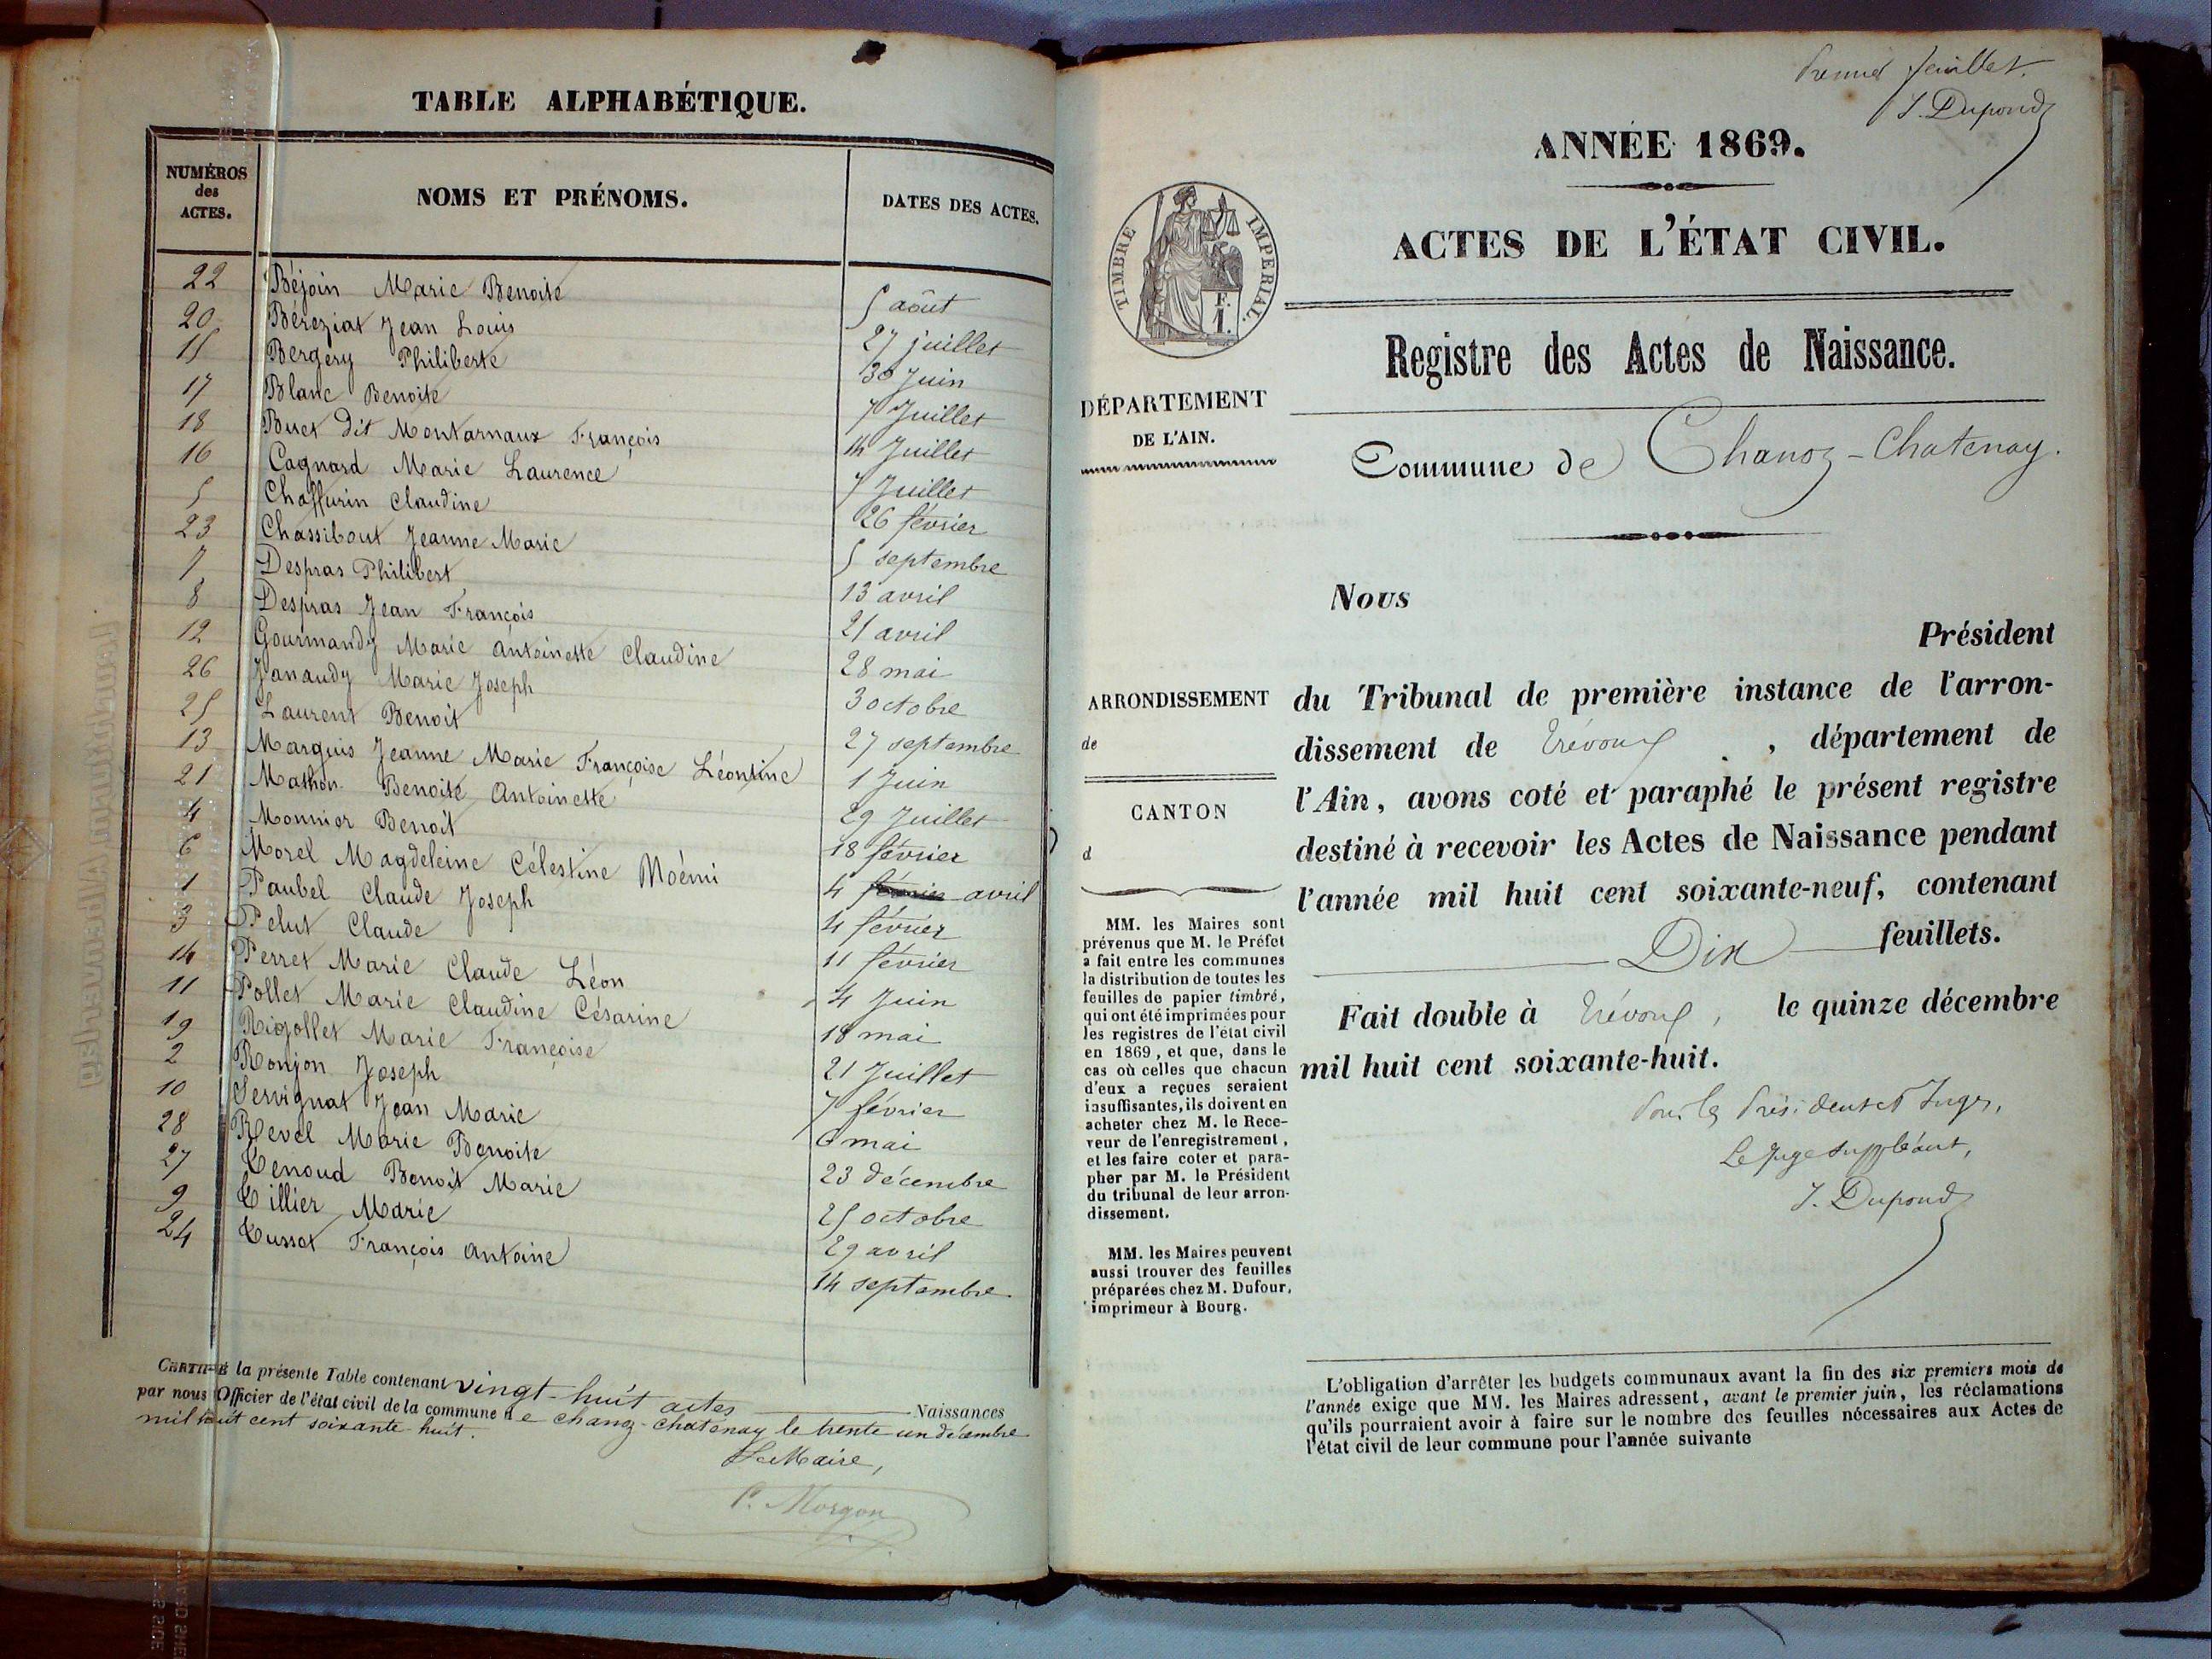 TABLE ALPHABÉTIQUE.
NUMÉROS des ACTES. NOMS ET PRÉNOMS. DATES DES ACTES.
22 Béjoin Marie Benoite 5 août
20 Béreziat Jean Louis 27 juillet
15 Bergery Philiberte 30 Juin
17 Blanc Benoite 7 Juillet
18 Buet dit Montarnaux François 14 Juillet
16 Cagnard Marie Laurence 7 Juillet
5 Chaffurin Claudine 26 février
23 Chassibout Jeanne Marie 5 septembre
7 Despras Philibert 13 avril
8 Despras Jean François 21 avril
12 Gourmandy Marie Antoinette Claudine 28 mai
26 Janaudy Marie Joseph 3 octobre
25 Laurent Benoit 27 septembre
13 Marguis Jeanne Marie Françoise Léontine 1 Juin
21 Mathon Benoite Antoinette 29 Juillet
4 Monnier Benoit 18 février
6 Morel Magdeleine Célestine Noémi 4 février avril
1 Paubel Claude Joseph 4 février
3 Pelut Claude 11 février
14 Perret Marie Claude Léon 4 Juin
11 Pollet Marie Claudine Césarine 18 mai
19 Rigollet Marie Françoise 21 Juillet
2 Ronjon Joseph 7 février
10 Servignat Jean Marie 6 mai
28 Revel Marie Benoite 23 décembre
27 Tenoud Benoit Marie 25 octobre
9 Tillier Marie 29 avril
24 Tusset François Antoine 14 septembre
CERTIFIÉ la présente Table contenant vingt-huit actes Naissances
par nous Officier de l'état civil de la commune de Chanoz-Chatenay le trente un décembre
mil huit cent soixante-huit.
Le Maire,
C. Morgon
Premier feuillet.
J. Dupond
ANNÉE 1869.
ACTES DE L'ÉTAT CIVIL.
TIMBRE IMPERIAL.
F.
1.
Registre des Actes de Naissance.
DÉPARTEMENT
DE L'AIN.
Commune de Chanoz-Chatenay.
Nous
Président
du Tribunal de première instance de l'arron-
dissement de Trévoux, département de
l'Ain, avons coté et paraphé le présent registre
destiné à recevoir les Actes de Naissance pendant
l'année mil huit cent soixante-neuf, contenant
Dix feuillets.
Fait double à Trévoux, le quinze décembre
mil huit cent soixante-huit.
Pour le Président et Juges,
Le Juge suppléant,
J. Dupond
ARRONDISSEMENT
de
CANTON
d
MM. les Maires sont
prévenus que M. le Préfet
a fait entre les communes
la distribution de toutes les
feuilles de papier timbré,
qui ont été imprimées pour
les registres de l'état civil
en 1869, et que, dans le
cas où celles que chacun
d'eux a reçues seraient
insuffisantes, ils doivent en
acheter chez M. le Rece-
veur de l'enregistrement,
et les faire coter et para-
pher par M. le Président
du tribunal de leur arron-
dissement.
MM. les Maires peuvent
aussi trouver des feuilles
préparées chez M. Dufour,
imprimeur à Bourg.
L'obligation d'arrêter les budgets communaux avant la fin des six premiers mois de
l'année exige que MM. les Maires adressent, avant le premier juin, les réclamations
qu'ils pourraient avoir à faire sur le nombre des feuilles nécessaires aux Actes de
l'état civil de leur commune pour l'année suivante